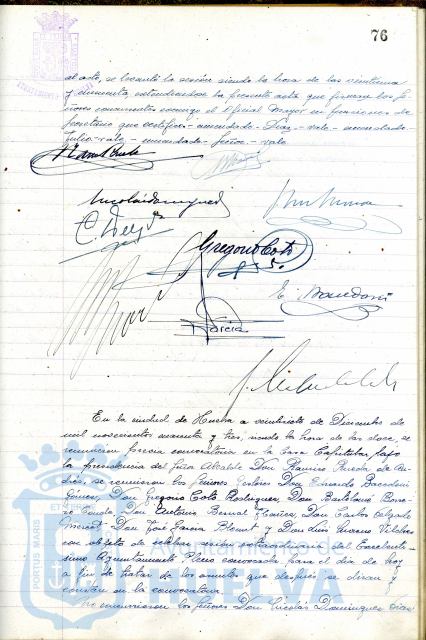 76
al acto, se levantó la sesión siendo la hora de las veintiuna
y cincuenta extendiéndose la presente acta que firman los Se-
ñores concurrentes conmigo el Oficial Mayor en funciones de
Secretario que certifico = enmendado = Díaz = vale = enmendado =
Julio = vale = enmendado = Señor = vale
Gregorio Coto
García
En la ciudad de Huelva a veintisiete de Diciembre de
mil novecientos cuarenta y tres, siendo la hora de las doce, se
reunieron previa convocatoria en la Casa Capitular bajo
la presidencia del Señor Alcalde Don Ramiro Pineda de An-
drés, se reunieron los Señores Gestores Don Eduardo
Gómez, Don Gregorio Coto Rodríguez, Don Bartolomé
Don Antonio Bernal Don Carlos Delgado
Don José García y Don Luis Moreno Vilches
con objeto de celebrar sesión extraordinaria del Excelentí-
simo Ayuntamiento Pleno convocada para el día de hoy
a fin de tratar de los asuntos que después se dirán y
constan en la convocatoria.
No concurrieron los Señores Don Nicolás Domínguez Díaz
PORTUS MARIS
ET TERRE
Ayuntamiento de
HUELVA